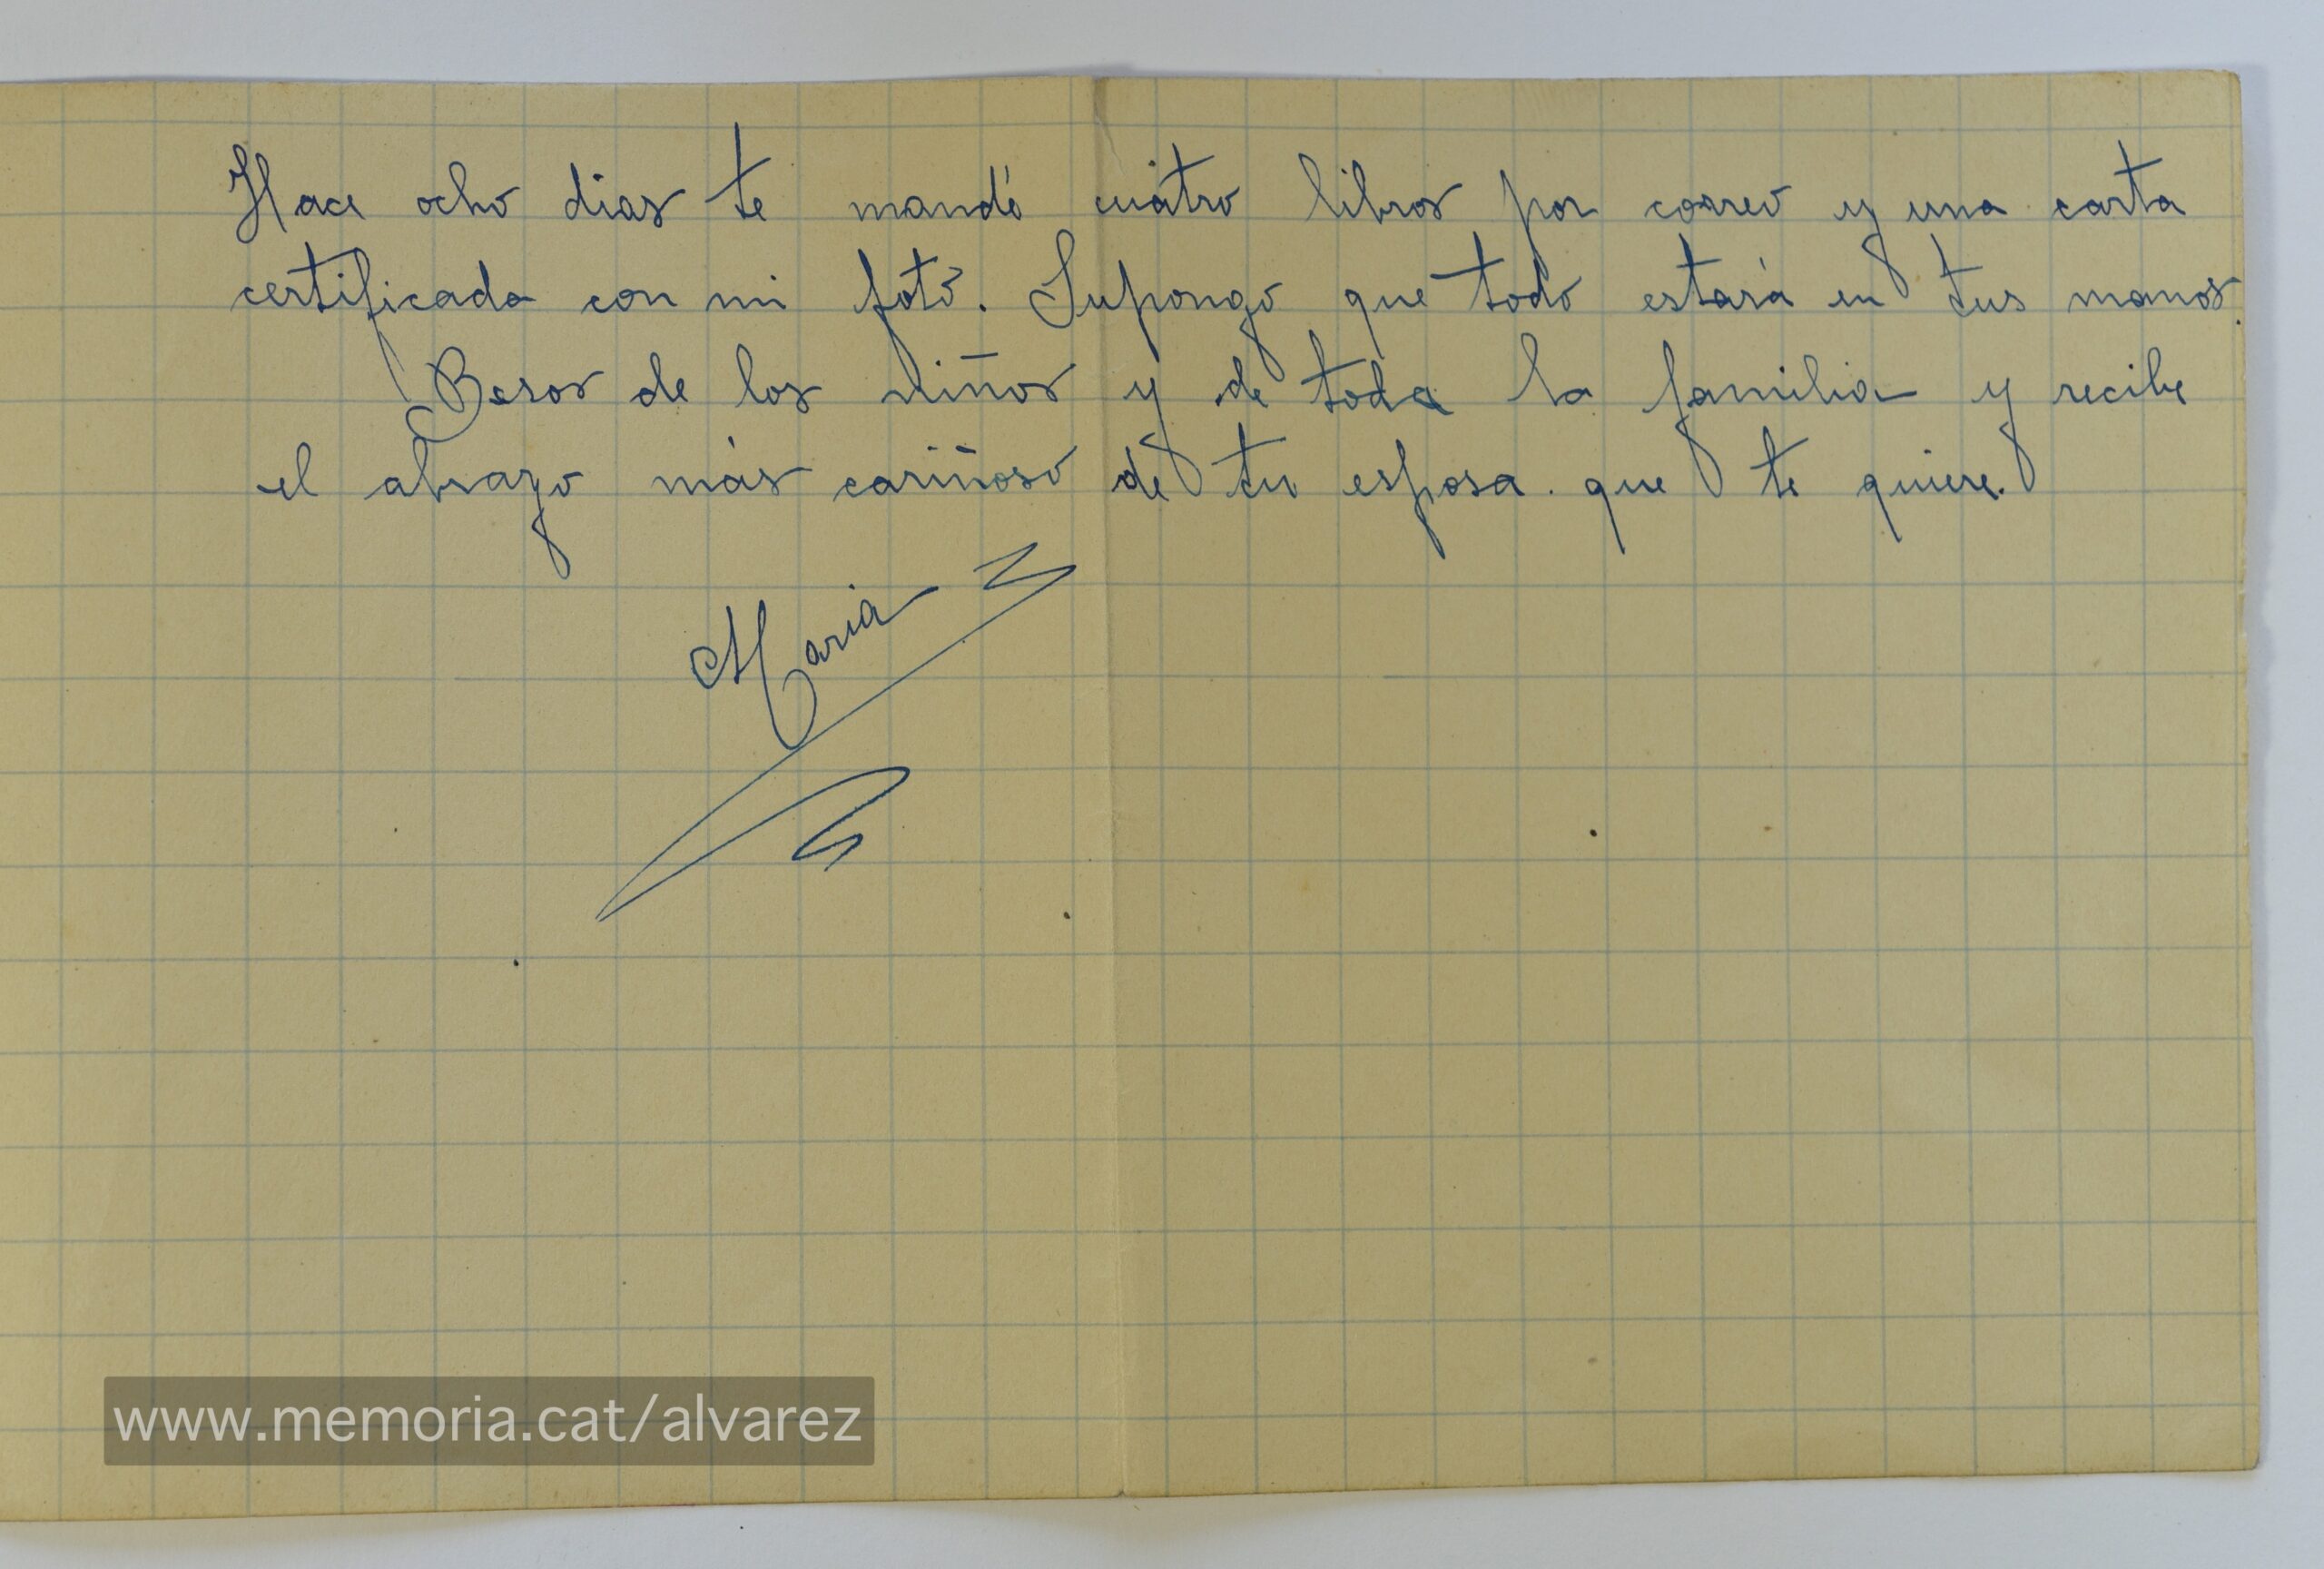 Hace ocho dias te mandé cuatro libros por correo y una carta
certificada con mi foto. Supongo que todo estará en tus manos.
Besos de los niños y de toda la familia y recibe
el abrazo más cariñoso de tu esposa que te quiere.
Maria
www.memoria.cat/alvarez